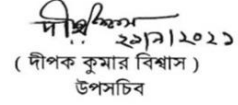 ২৯/৭/২০২১
( দীপক কুমার বিশ্বাস )
উপসচিব